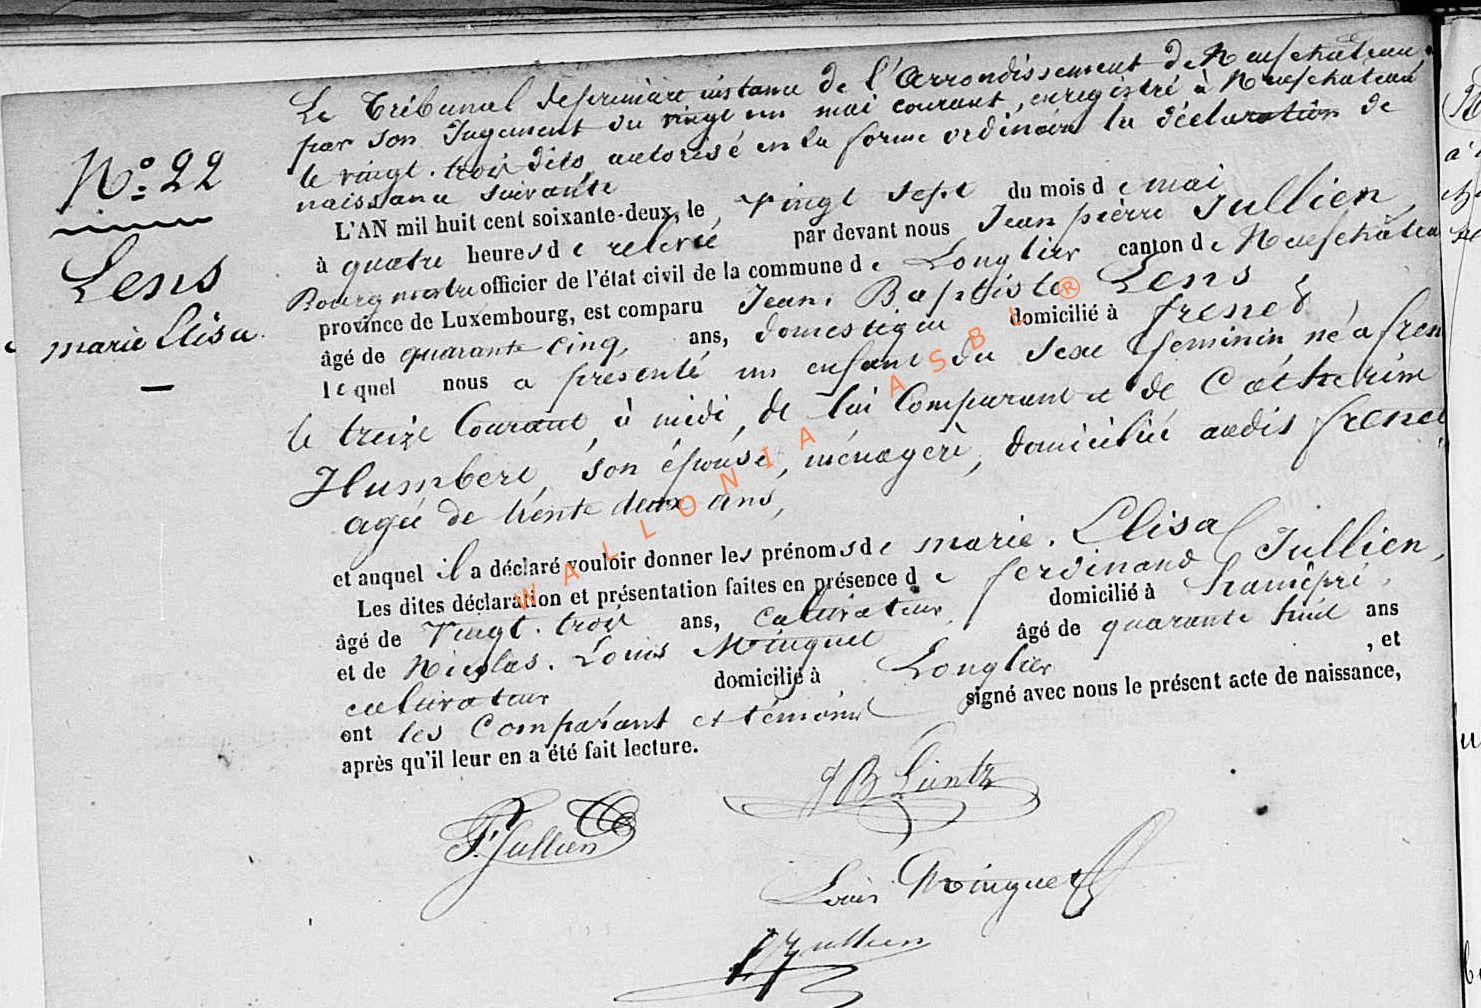 Le Tribunal de première instance de l'Arrondissement de Neufchateau
par son Jugement du vingt un mai courant, enregistré à Neufchateau
le vingt-trois dito, autorisé en la forme ordinaire la déclaration de
naissance suivante
N°. 22
Lens
marie Elisa.
L'AN mil huit cent soixante-deux, le vingt sept du mois de mai
à quatre heures de relevée par devant nous Jean pierre Jullien,
Bourgmestre officier de l'état civil de la commune de Longlier canton de Neufchateau
province de Luxembourg, est comparu Jean Baptiste Lens
âgé de quarante cinq ans, domestique domicilié à frenet
lequel nous a présenté un enfant du sexe feminin, né a fren
le treize Courant à midi, de lui Comparant et de Catherine
Humbert, son épouse, ménagère, domiciliée audit frenet
agée de trente deux ans,
et auquel il a déclaré vouloir donner les prénoms de marie. Elisa
Les dites déclaration et présentation faites en présence de ferdinand Jullien,
âgé de vingt-trois ans, cultivateur, domicilié à hamipré,
et de Nicolas. Louis Minguet âgé de quarante huit ans
cultivateur domicilié à Longlier , et
ont les Comparant et témoins signé avec nous le présent acte de naissance,
après qu'il leur en a été fait lecture.
JB Lentz
F. Jullien
Louis Minguet
Jullien
WALLONIA ASBL ®